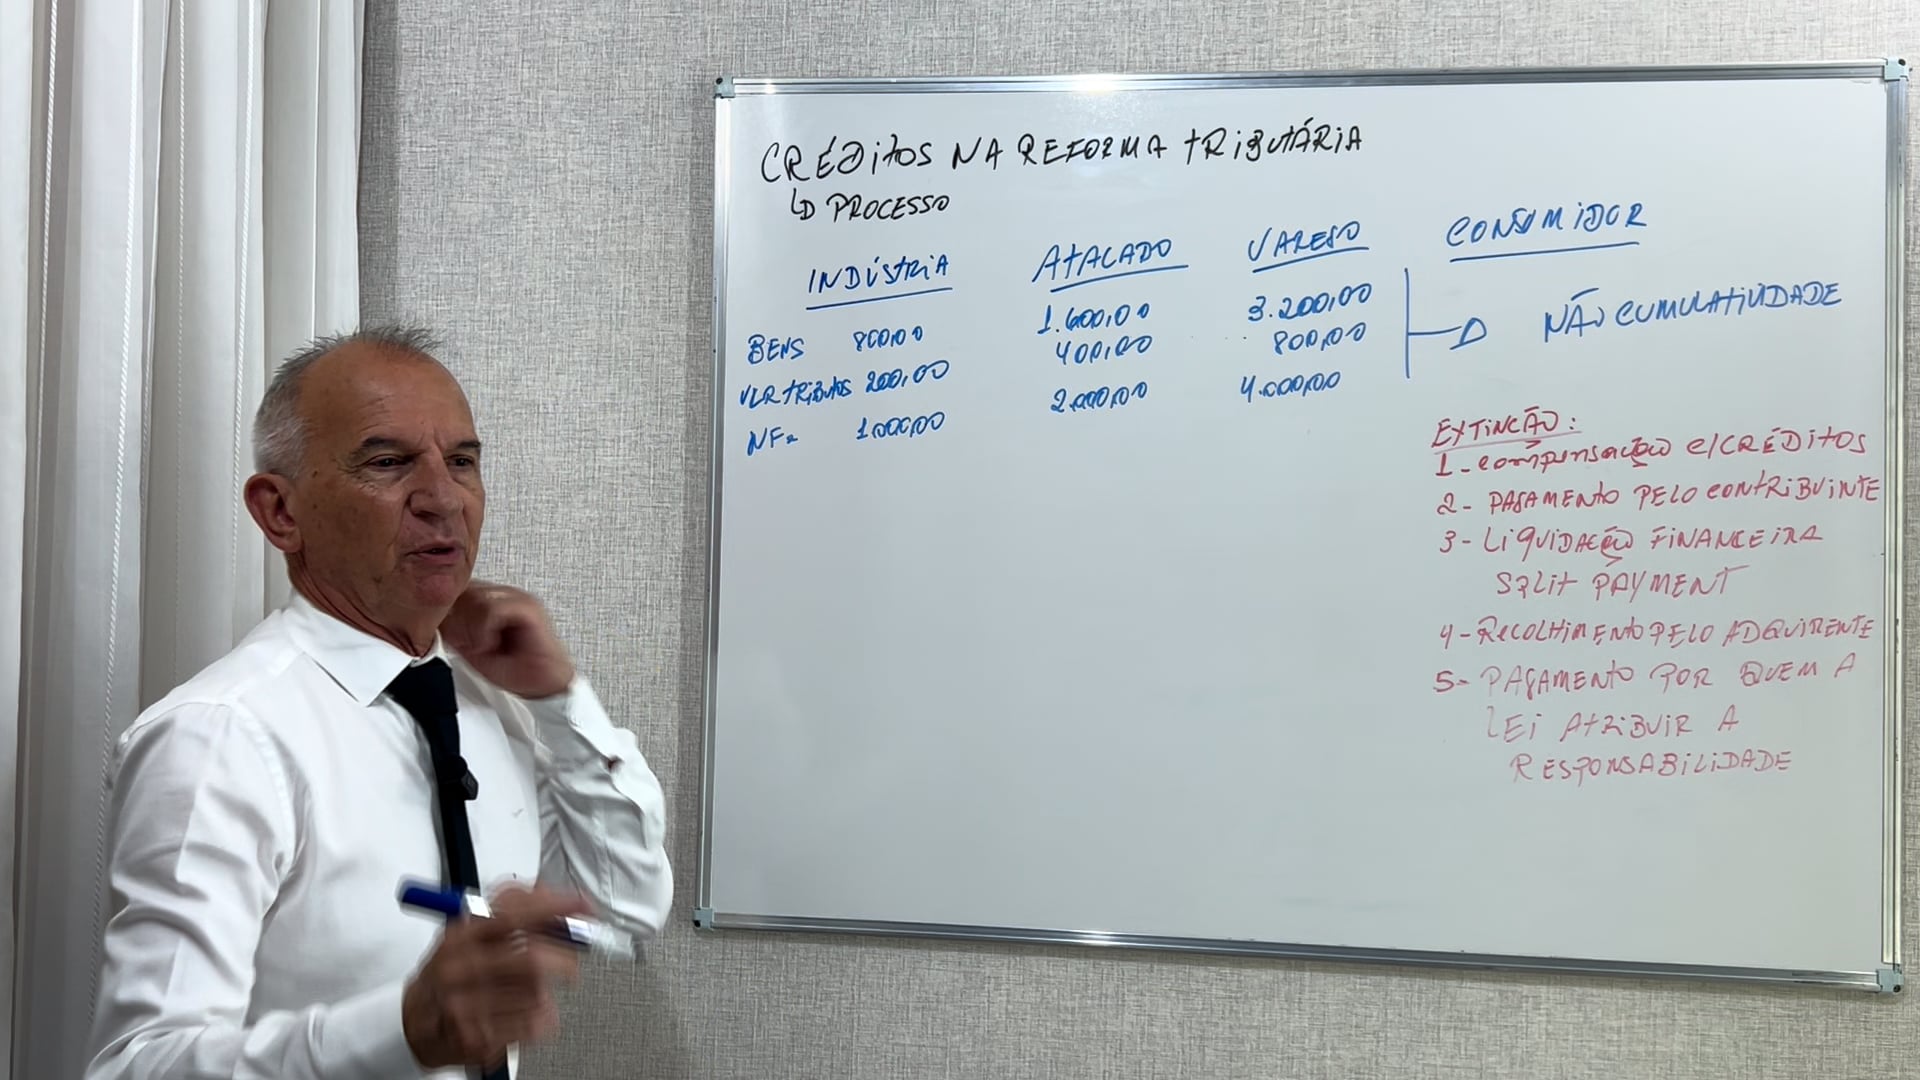 CRÉDITOS NA REFORMA TRIBUTÁRIA
PROCESSO
INDÚSTRIA ATACADO VAREJO CONSUMIDOR
BENS 800,00 1.600,00 3.200,00
VLR TRIBUTOS 200,00 400,00 800,00
NF= 1.000,00 2.000,00 4.000,00
NÃO CUMULATIVIDADE
EXTINÇÃO:
1- COMPENSAÇÃO C/CRÉDITOS
2- PAGAMENTO PELO CONTRIBUINTE
3- LIQUIDAÇÃO FINANCEIRA
SPLIT PAYMENT
4- RECOLHIMENTO PELO ADQUIRENTE
5- PAGAMENTO POR QUEM A
LEI ATRIBUIR A
RESPONSABILIDADE